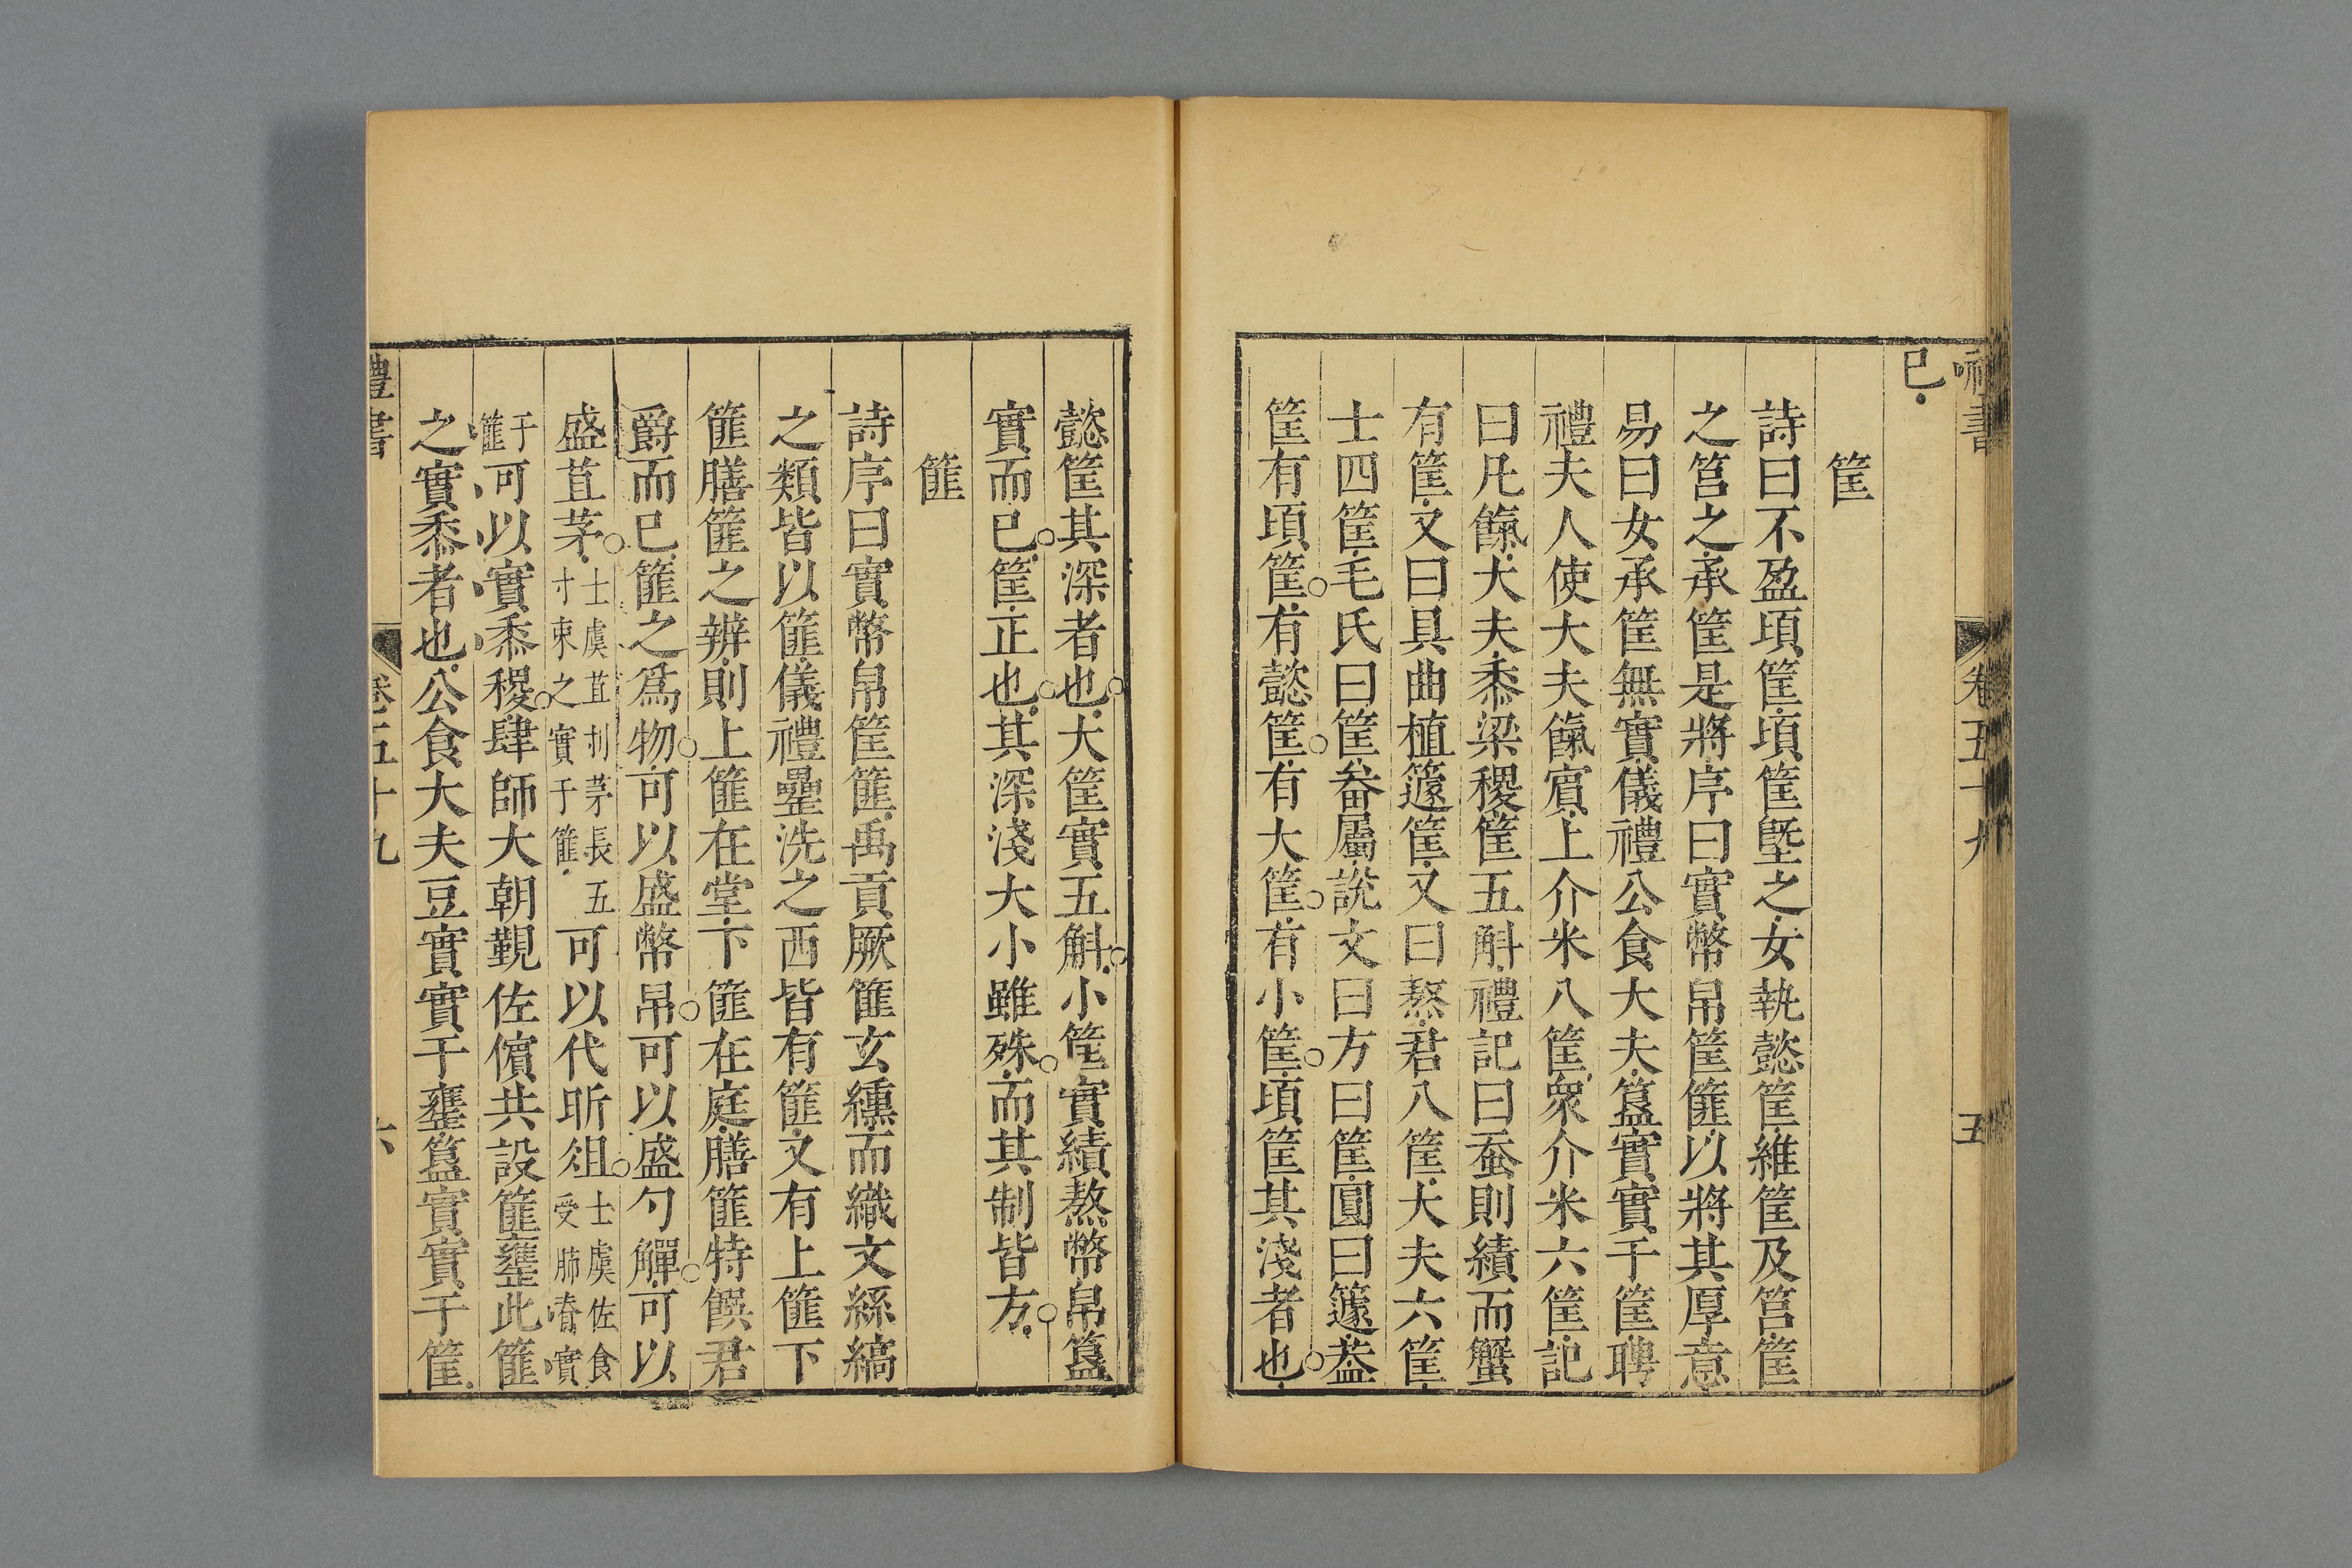 禮書
卷五十九
五
已
筐
詩曰不盈項筐項筐塈之女執懿筐維筐及筥筐
之筥之承筐是將序曰實幣帛筐篚以將其厚意
易曰女承筐無實儀禮公食大夫簋實實于筐聘
禮夫人使大夫餼賓上介米八筐衆介米六筐記
曰凡餼大夫黍梁稷筐五斛禮記曰蚕則績而蟹
有筐文曰具曲植籧筐又曰熬君八筐大夫六筐
士四筐毛氏曰筐畚屬說文曰方曰筐圓曰籧葢
筐有頃筐有懿筐有大筐有小筐頃筐其淺者也
懿筐其深者也大筐實五斛小筐實績熬幣帛簋
實而已筐正也其深淺大小雖殊而其制皆方
篚
詩序曰實幣帛筐篚禹貢厥篚玄纁而織文絲縞
之類皆以篚儀禮罍洗之西皆有篚文有上篚下
篚膳篚之辨則上篚在堂下篚在庭膳篚特饌君
爵而已篚之爲物可以盛幣帛可以盛勺觶可以
盛苴茅士虞苴刌茅長五寸束之實于篚可以代肵俎士虞佐食受肺脊實
于篚可以實黍稷肆師大朝覲佐儐共設篚罋此篚
之實黍者也公食大夫豆實實于罋簋實實于筐
禮書
卷五十九
六